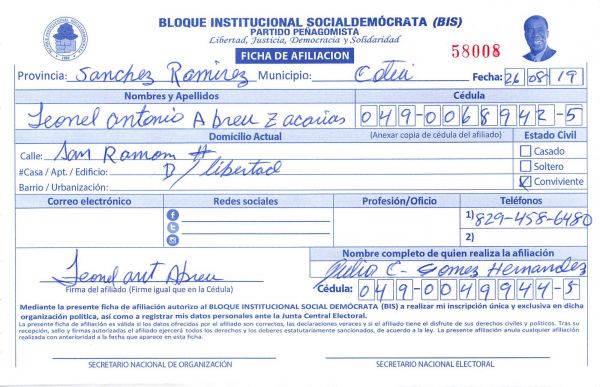 BLOQUE INSTITUCIONAL SOCIALDEMÓCRATA (BIS)
PARTIDO PEÑAGOMISTA
Libertad, Justicia, Democracia y Solidaridad
FICHA DE AFILIACION
58008
Provincia: Sanchez Ramirez Municipio: Cotui Fecha: 26 08 19
Nombres y Apellidos Cédula
Leonel Antonio Abreu Zacarias 049-0068942-5
Domicilio Actual (Anexar copia de cédula del afiliado) Estado Civil
Calle: San Ramom #
#Casa / Apt. / Edificio: D / libertad
Barrio / Urbanización:
Casado
Soltero
Conviviente
Correo electrónico Redes sociales Profesión/Oficio Teléfonos
1) 829-458-6480
2)
Leonel ant Abreu
Firma del afiliado (Firme igual que en la Cédula)
Nombre completo de quien realiza la afiliación
Julio C- Gomez Hernandez
Cédula: 049-0049944-5
Mediante la presente ficha de afiliación autorizo al BLOQUE INSTITUCIONAL SOCIAL DEMÓCRATA (BIS) a realizar mi inscripción única y exclusiva en dicha
organización política, así como a registrar mis datos personales ante la Junta Central Electoral.
La presente ficha de afiliación es válida si los datos ofrecidos por el afiliado son correctos, las declaraciones veraces y si el afiliado tiene el disfrute de sus derechos civiles y políticos. Tras su
recepción, sello y firmas autorizadas el afiliado ejercerá todos los derechos y los deberes estatutariamente sancionados, de acuerdo a la ley. La presente afiliación anula cualquier afiliación
realizada con anterioridad a la fecha que aparece en esta ficha.
SECRETARIO NACIONAL DE ORGANIZACIÓN SECRETARIO NACIONAL ELECTORAL